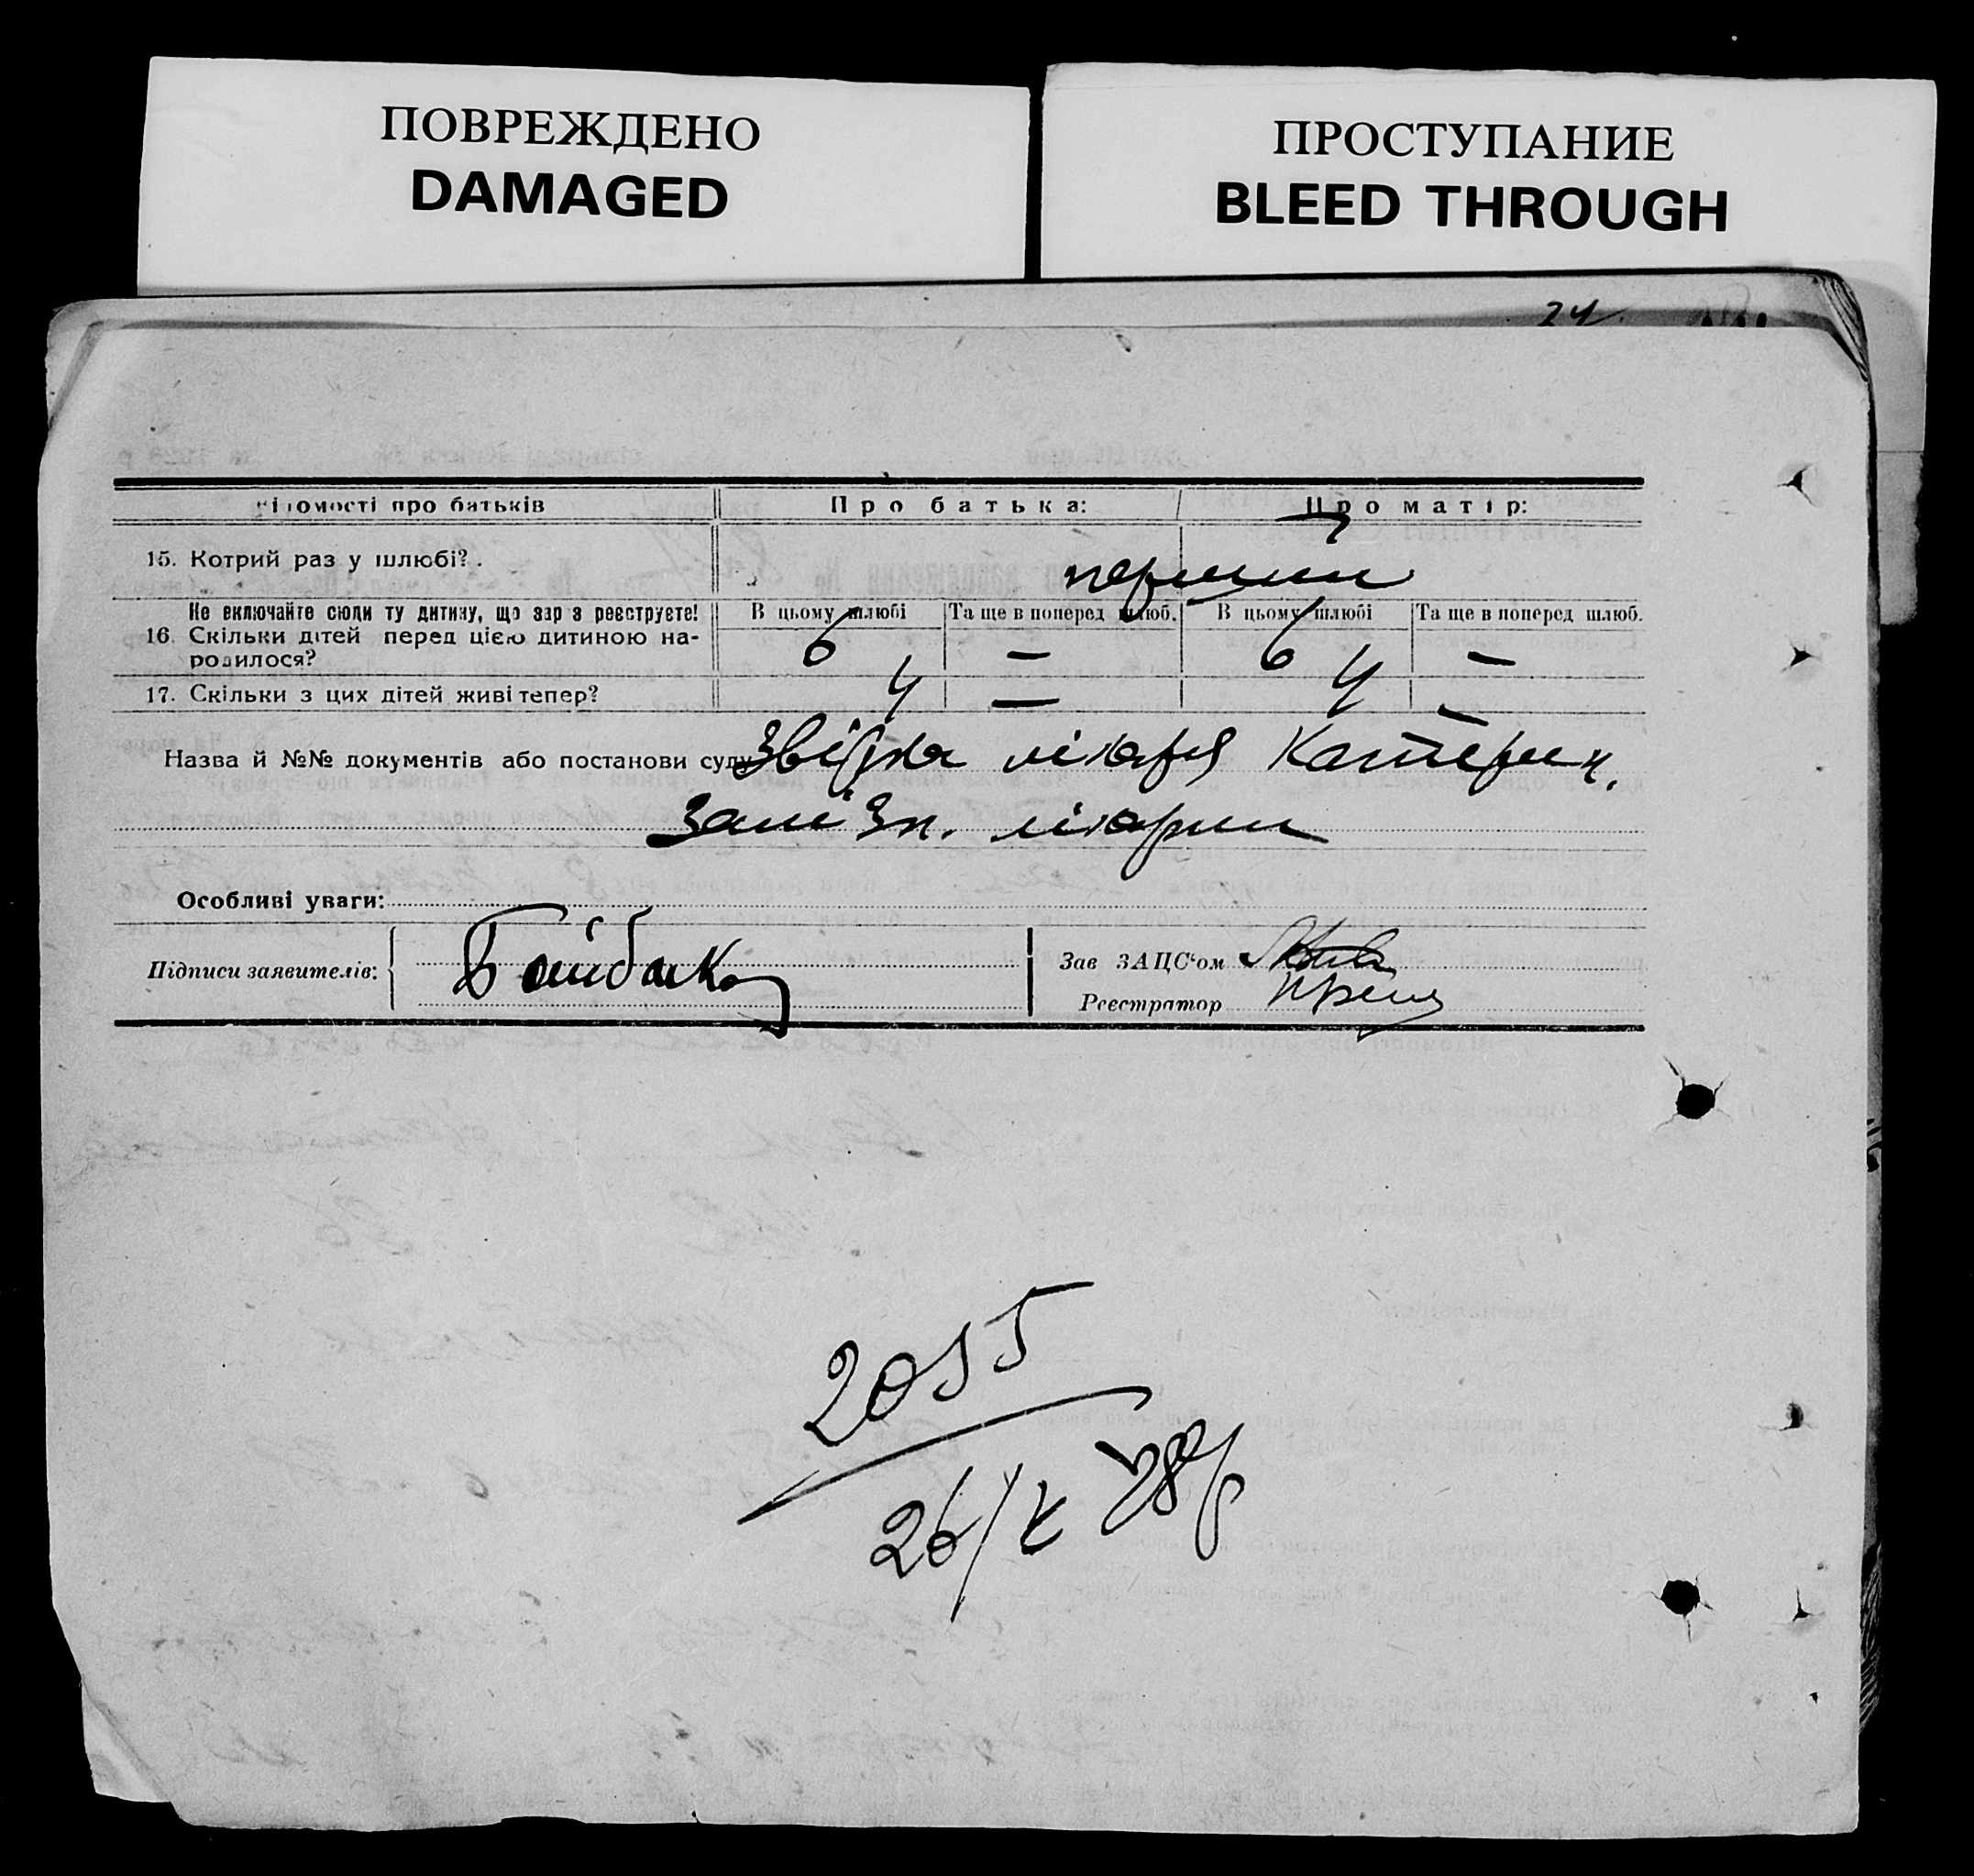 ПОВРЕЖДЕНО
DAMAGED
ПРОСТУПАНИЕ
BLEED THROUGH
24
відомості про батьків Про батька: Про матір:
15. Котрий раз у шлюбі? . перший
Не включайте сюди ту дитину, що зар з реєструєте! В цьому шлюбі Та ще в поперед шлюб. В цьому шлюбі Та ще в поперед шлюб.
16. Скільки дітей перед цією дитиною на-
родилося? 6 — 6 —
17. Скільки з цих дітей живі тепер? 4 — 4 —
Назва й №№ документів або постанови суду Звідка лікаря Катерин.
ЗаліЗн. лікарни
Особливі уваги:
Підписи заявителів: Байбак
Зав ЗАЦС'ом
Реєстратор
2055
26/X 28р